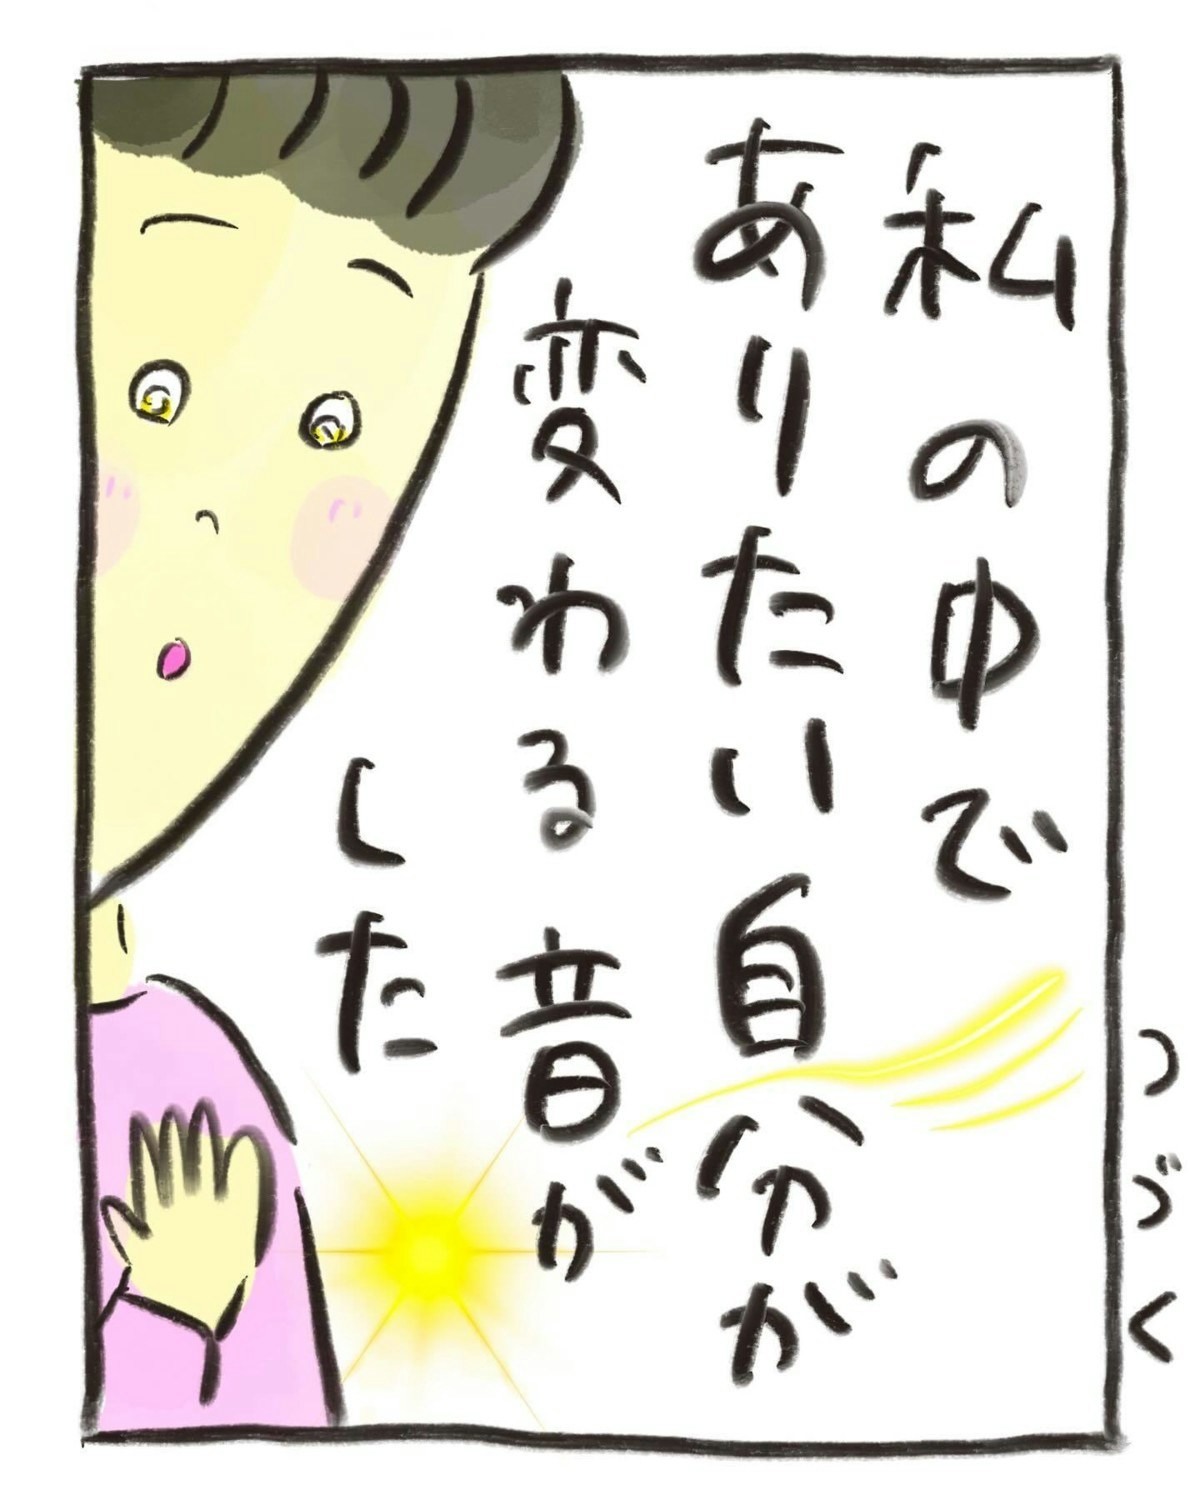 私の中で
ありたい自分が
変わる音が
した
つづく